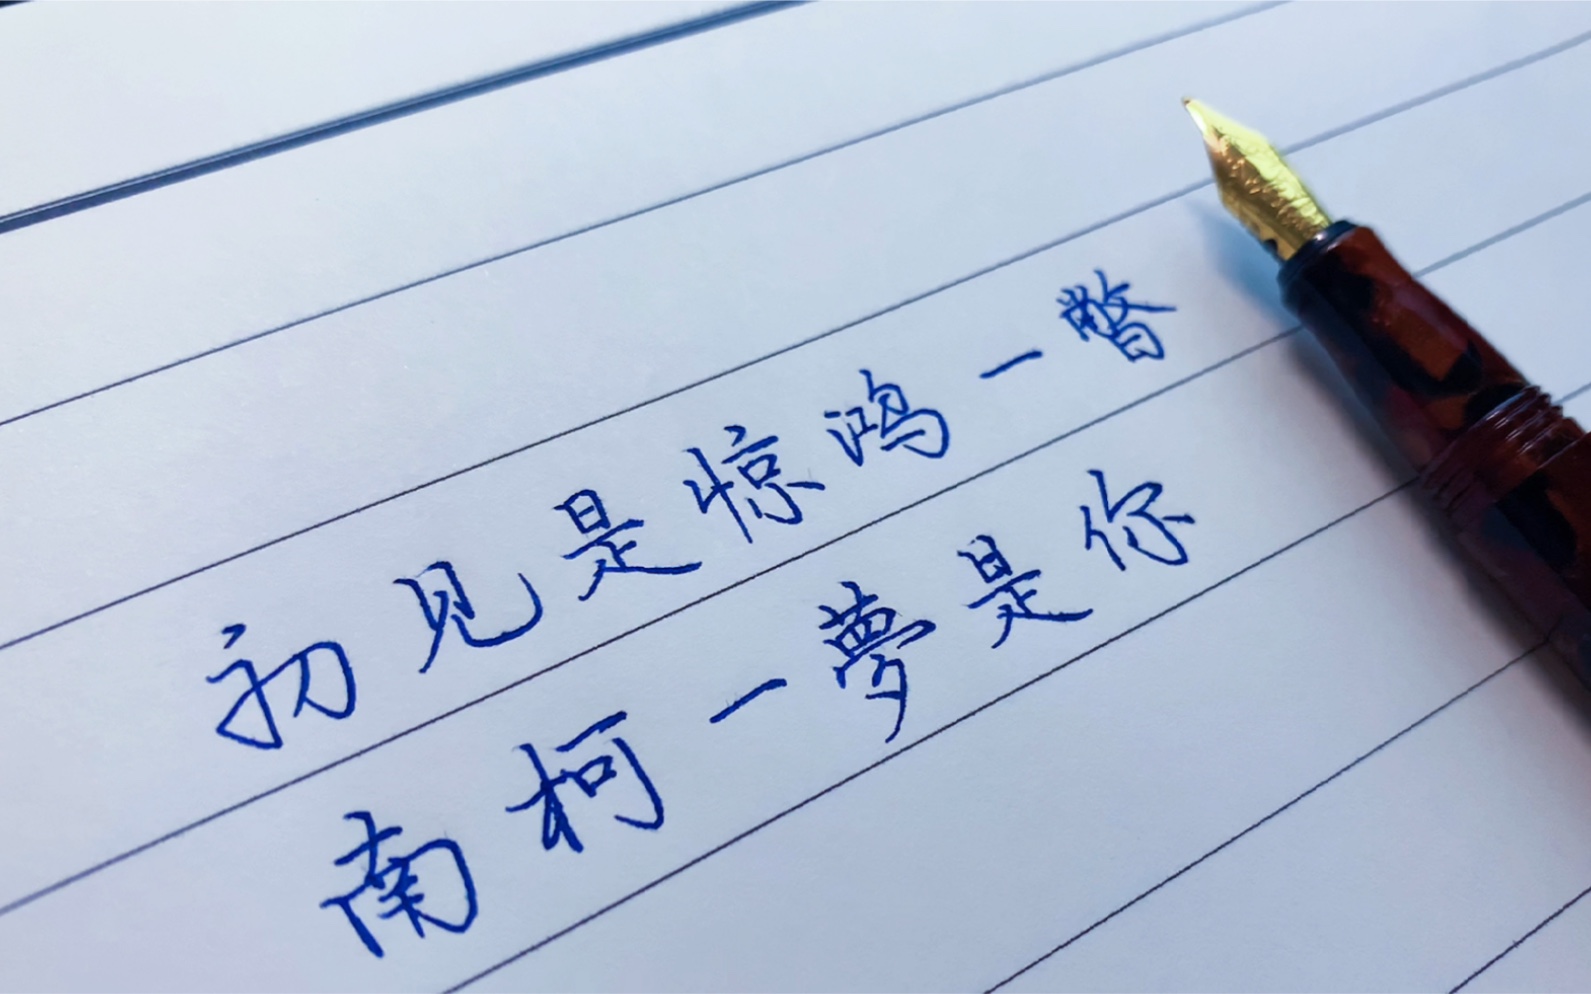 初见是惊鸿一瞥
南柯一夢是你